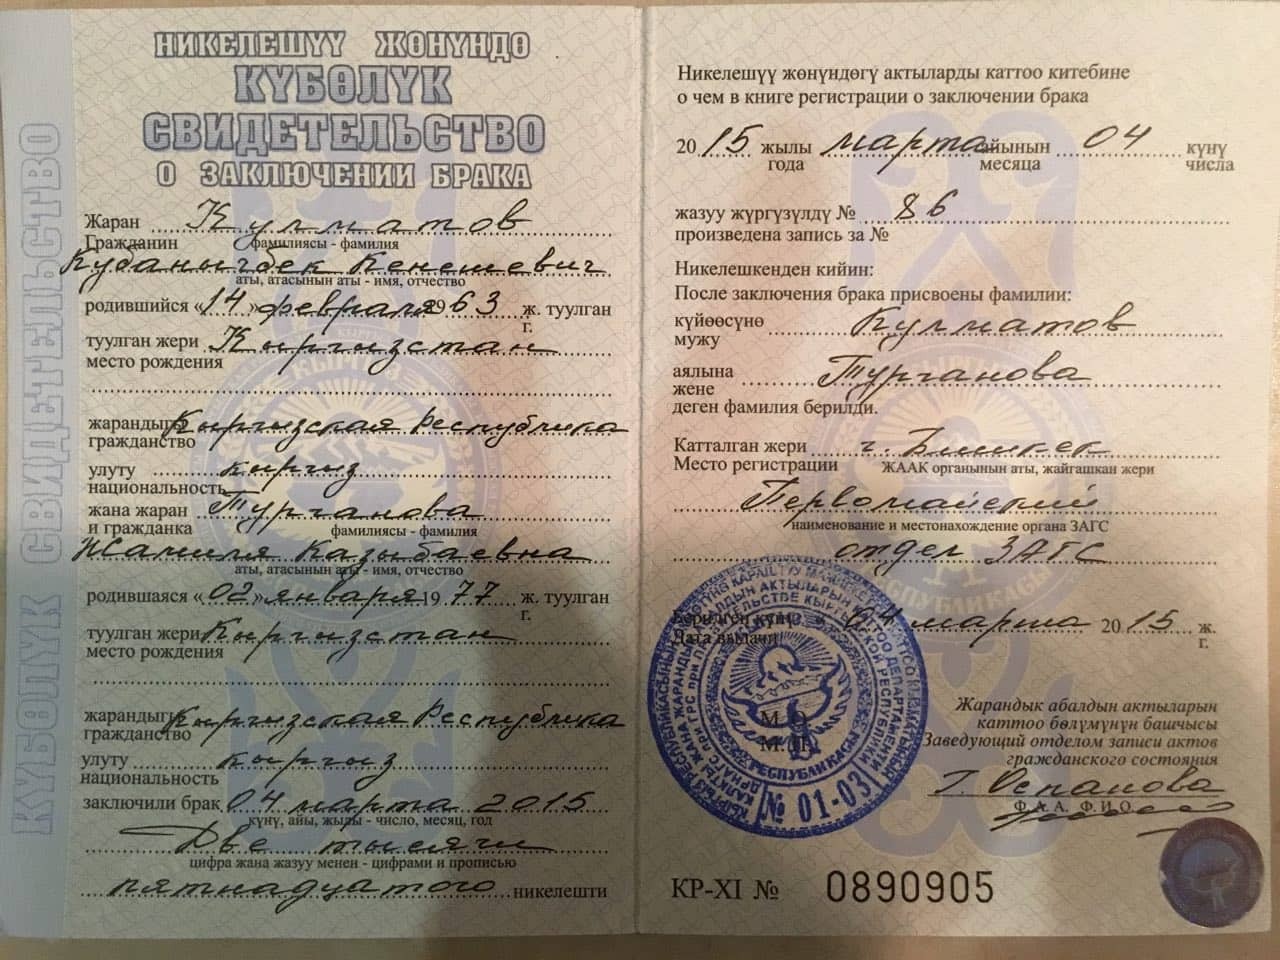 КҮБӨЛҮК СВИДЕТЕЛЬСТВО
НИКЕЛЕШҮҮ ЖӨНҮНДӨ
КҮБӨЛҮК
СВИДЕТЕЛЬСТВО
О ЗАКЛЮЧЕНИИ БРАКА
Жаран Кулматов
Гражданин фамилиясы - фамилия
Кубанычбек Кенешевич
аты, атасынын аты - имя, отчество
родившийся «14» февраля 1963 ж. туулган
г.
туулган жери Кыргызстан
место рождения
жарандыгы Кыргызская Республика
гражданство
улуту кыргыз
национальность
жана жаран Турганова
и гражданка фамилиясы - фамилия
Жамиля Казыбаевна
аты, атасынын аты - имя, отчество
родившаяся «02» января 1977 ж. туулган
г.
туулган жери Кыргызстан
место рождения
жарандыгы Кыргызская Республика
гражданство
улуту кыргыз
национальность
заключили брак 04 марта 2015
күнү, айы, жылы - число, месяц, год
Две тысячи
цифра жана жазуу менен - цифрами и прописью
пятнадцатого никелешти
Никелешүү жөнүндөгү актыларды каттоо китебине
о чем в книге регистрации о заключении брака
2015 жылы марта айынын 04 күнү
года месяца числа
жазуу жүргүзүлдү № 86
произведена запись за №
Никелешкенден кийин:
После заключения брака присвоены фамилии:
күйөөсүнө Кулматов
мужу
аялына Турганова
жене
деген фамилия берилди.
Катталган жери г. Бишкек
Место регистрации ЖААК органынын аты, жайгашкан жери
Первомайский
наименование и местонахождение органа ЗАГС
отдел ЗАГС
Берилген күнү 04 марта 2015 ж.
Дата выдачи г.
М.О.
М.П.
№ 01-03
Жарандык абалдын актыларын
каттоо бөлүмүнүн башчысы
Заведующий отделом записи актов
гражданского состояния
Г. Оспанова
Ф.А.А. Ф.И.О.
КР-XI № 0890905